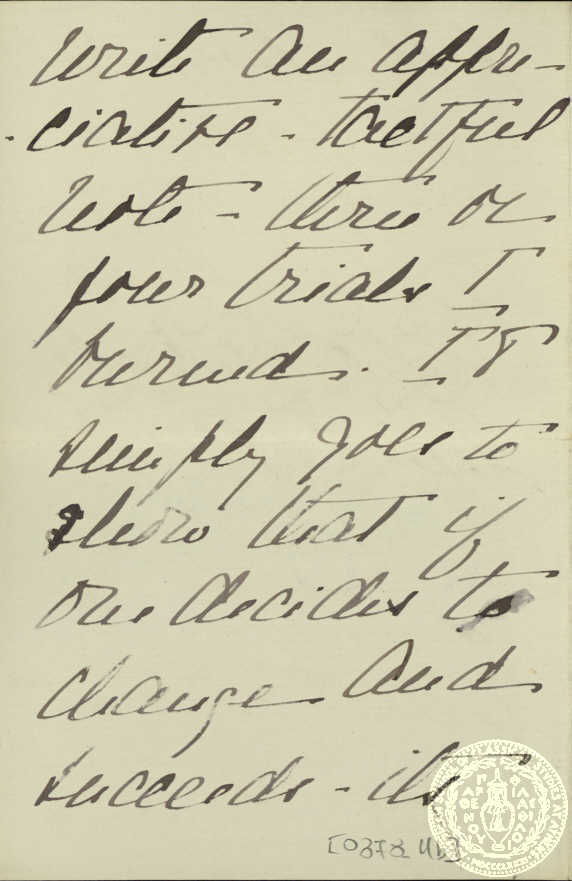 write an appre-
ciative - tactful
note - three or
four trials I
burned. It
simply goes to
show that if
one decides to
change and
succeeds - its